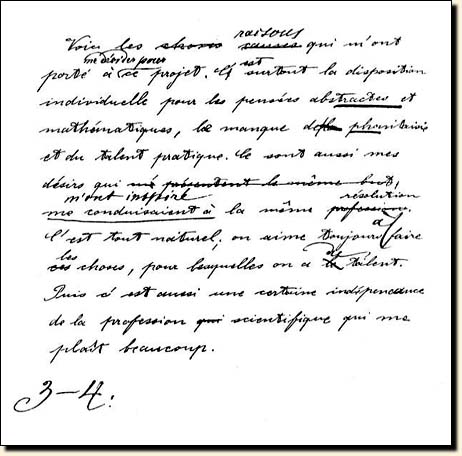 raisons
Voici les choses causes qui m'ont
me décider pour est
porté à ce projet. C' surtout la disposition
individuelle pour les pensées abstractes et
mathématiques, le manque de la phantaisie
et du talent pratique. Ce sont aussi mes
désirs qui me présentent le même but,
m'ont inspiré résolution
me conduisaient à la même profession.
à
C'est tout naturel, on aime toujours faire
les
ces choses, pour lesquelles on a le talent.
Puis c'est aussi une certaine indépendance
de la profession qui scientifique qui me
plaît beaucoup.
3–4.